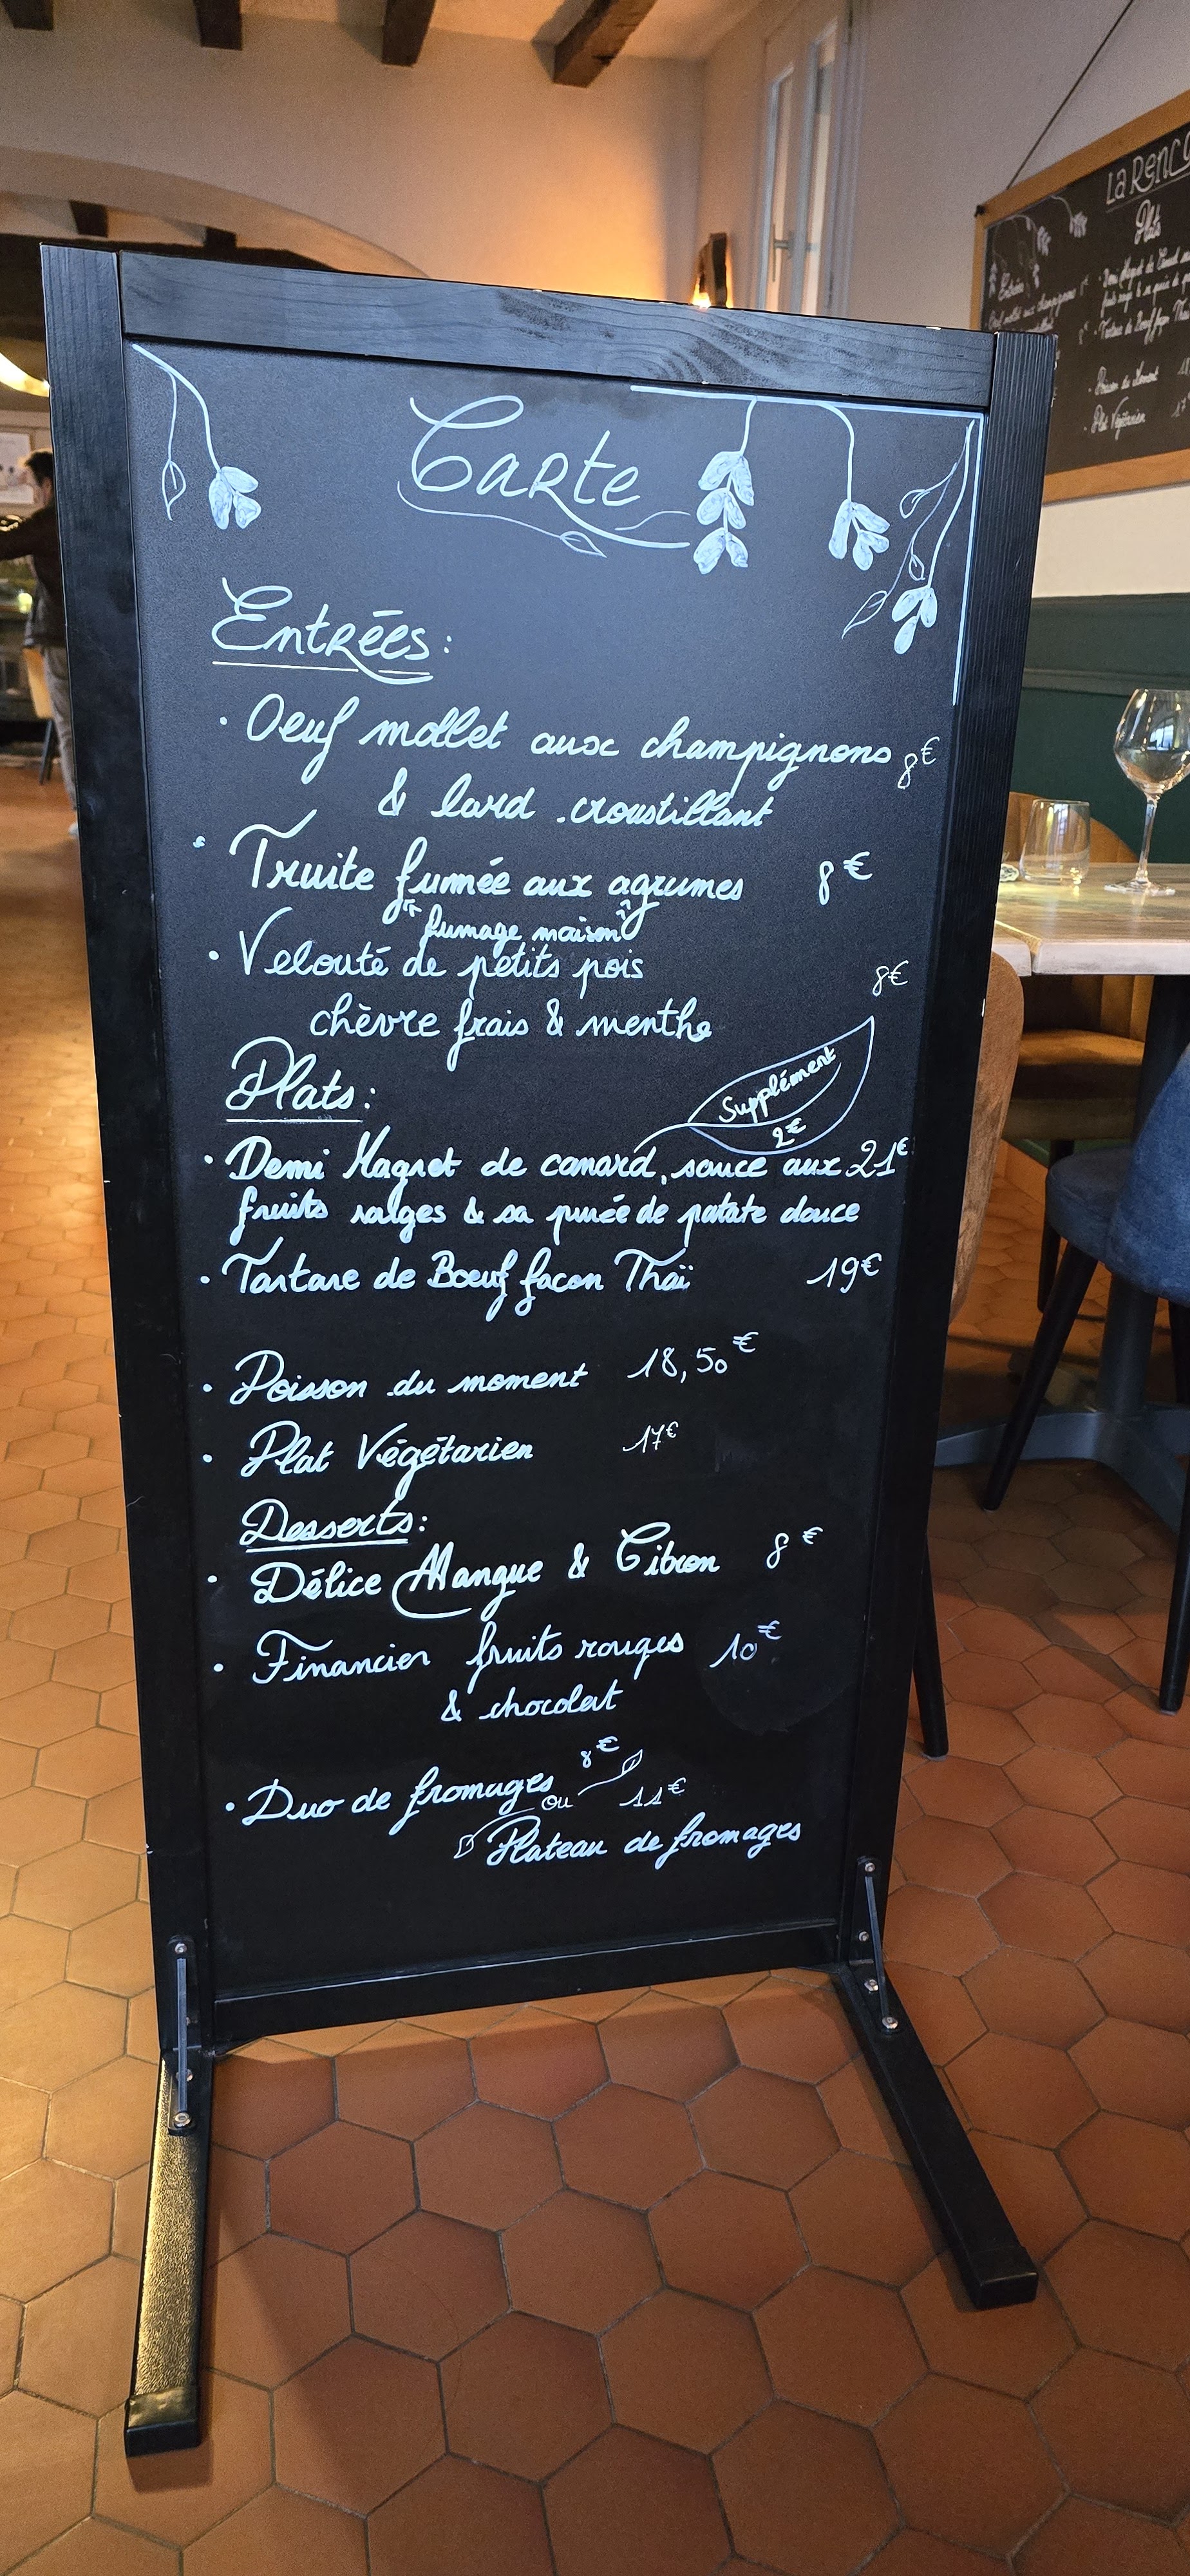 Carte
Entrées :
· Oeuf mollet aux champignons 8€
& lard croustillant
· Truite fumée aux agrumes 8€
"fumage maison"
· Velouté de petits pois 8€
chèvre frais & menthe
Plats :
Supplément
2€
· Demi Magret de canard, sauce aux 21€
fruits rouges & sa purée de patate douce
· Tartare de Boeuf façon Thaï 19€
· Poisson du moment 18,50€
· Plat Végétarien 17€
Desserts :
· Délice Mangue & Citron 8€
· Financier fruits rouges 10€
& chocolat
8€
· Duo de fromages
ou 11€
Plateau de fromages
La Renco
Plats
Entrées
· Demi Magret de Canard
· Tartare de Boeuf façon Thaï
· Poisson du Moment 18
· Plat Végétarien 17